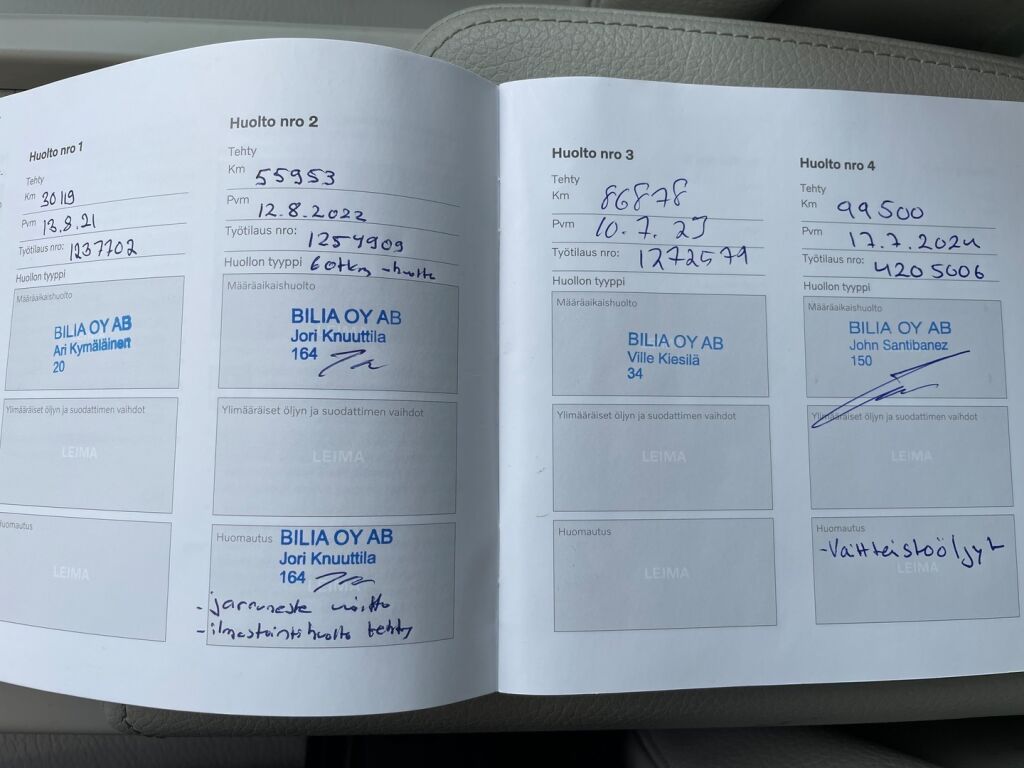 Huolto nro 1
Tehty
Km 30119
Pvm 13.8.21
Työtilaus nro: 1237702
Huollon tyyppi
Määräaikaishuolto
BILIA OY AB
Ari Kymäläinen
20
Ylimääräiset öljyn ja suodattimen vaihdot
LEIMA
Huomautus
LEIMA
Huolto nro 2
Tehty
Km 55953
Pvm 12.8.2022
Työtilaus nro: 1254909
Huollon tyyppi 60tkm -huolto
Määräaikaishuolto
BILIA OY AB
Jori Knuuttila
164
Ylimääräiset öljyn ja suodattimen vaihdot
LEIMA
Huomautus
BILIA OY AB
Jori Knuuttila
164
- jarruneste
- ilmastointihuolto tehty
Huolto nro 3
Tehty
Km 86878
Pvm 10.7.23
Työtilaus nro: 1272579
Huollon tyyppi
Määräaikaishuolto
BILIA OY AB
Ville Kiesilä
34
Ylimääräiset öljyn ja suodattimen vaihdot
LEIMA
Huomautus
LEIMA
Huolto nro 4
Tehty
Km 99500
Pvm 17.7.2024
Työtilaus nro: 4205006
Huollon tyyppi
Määräaikaishuolto
BILIA OY AB
John Santibanez
150
Ylimääräiset öljyn ja suodattimen vaihdot
LEIMA
Huomautus
-Vaihteistoöljyt
LEIMA